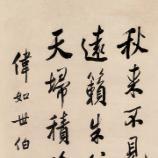 秋来不見
遠籟生
天掃積
偉如世伯